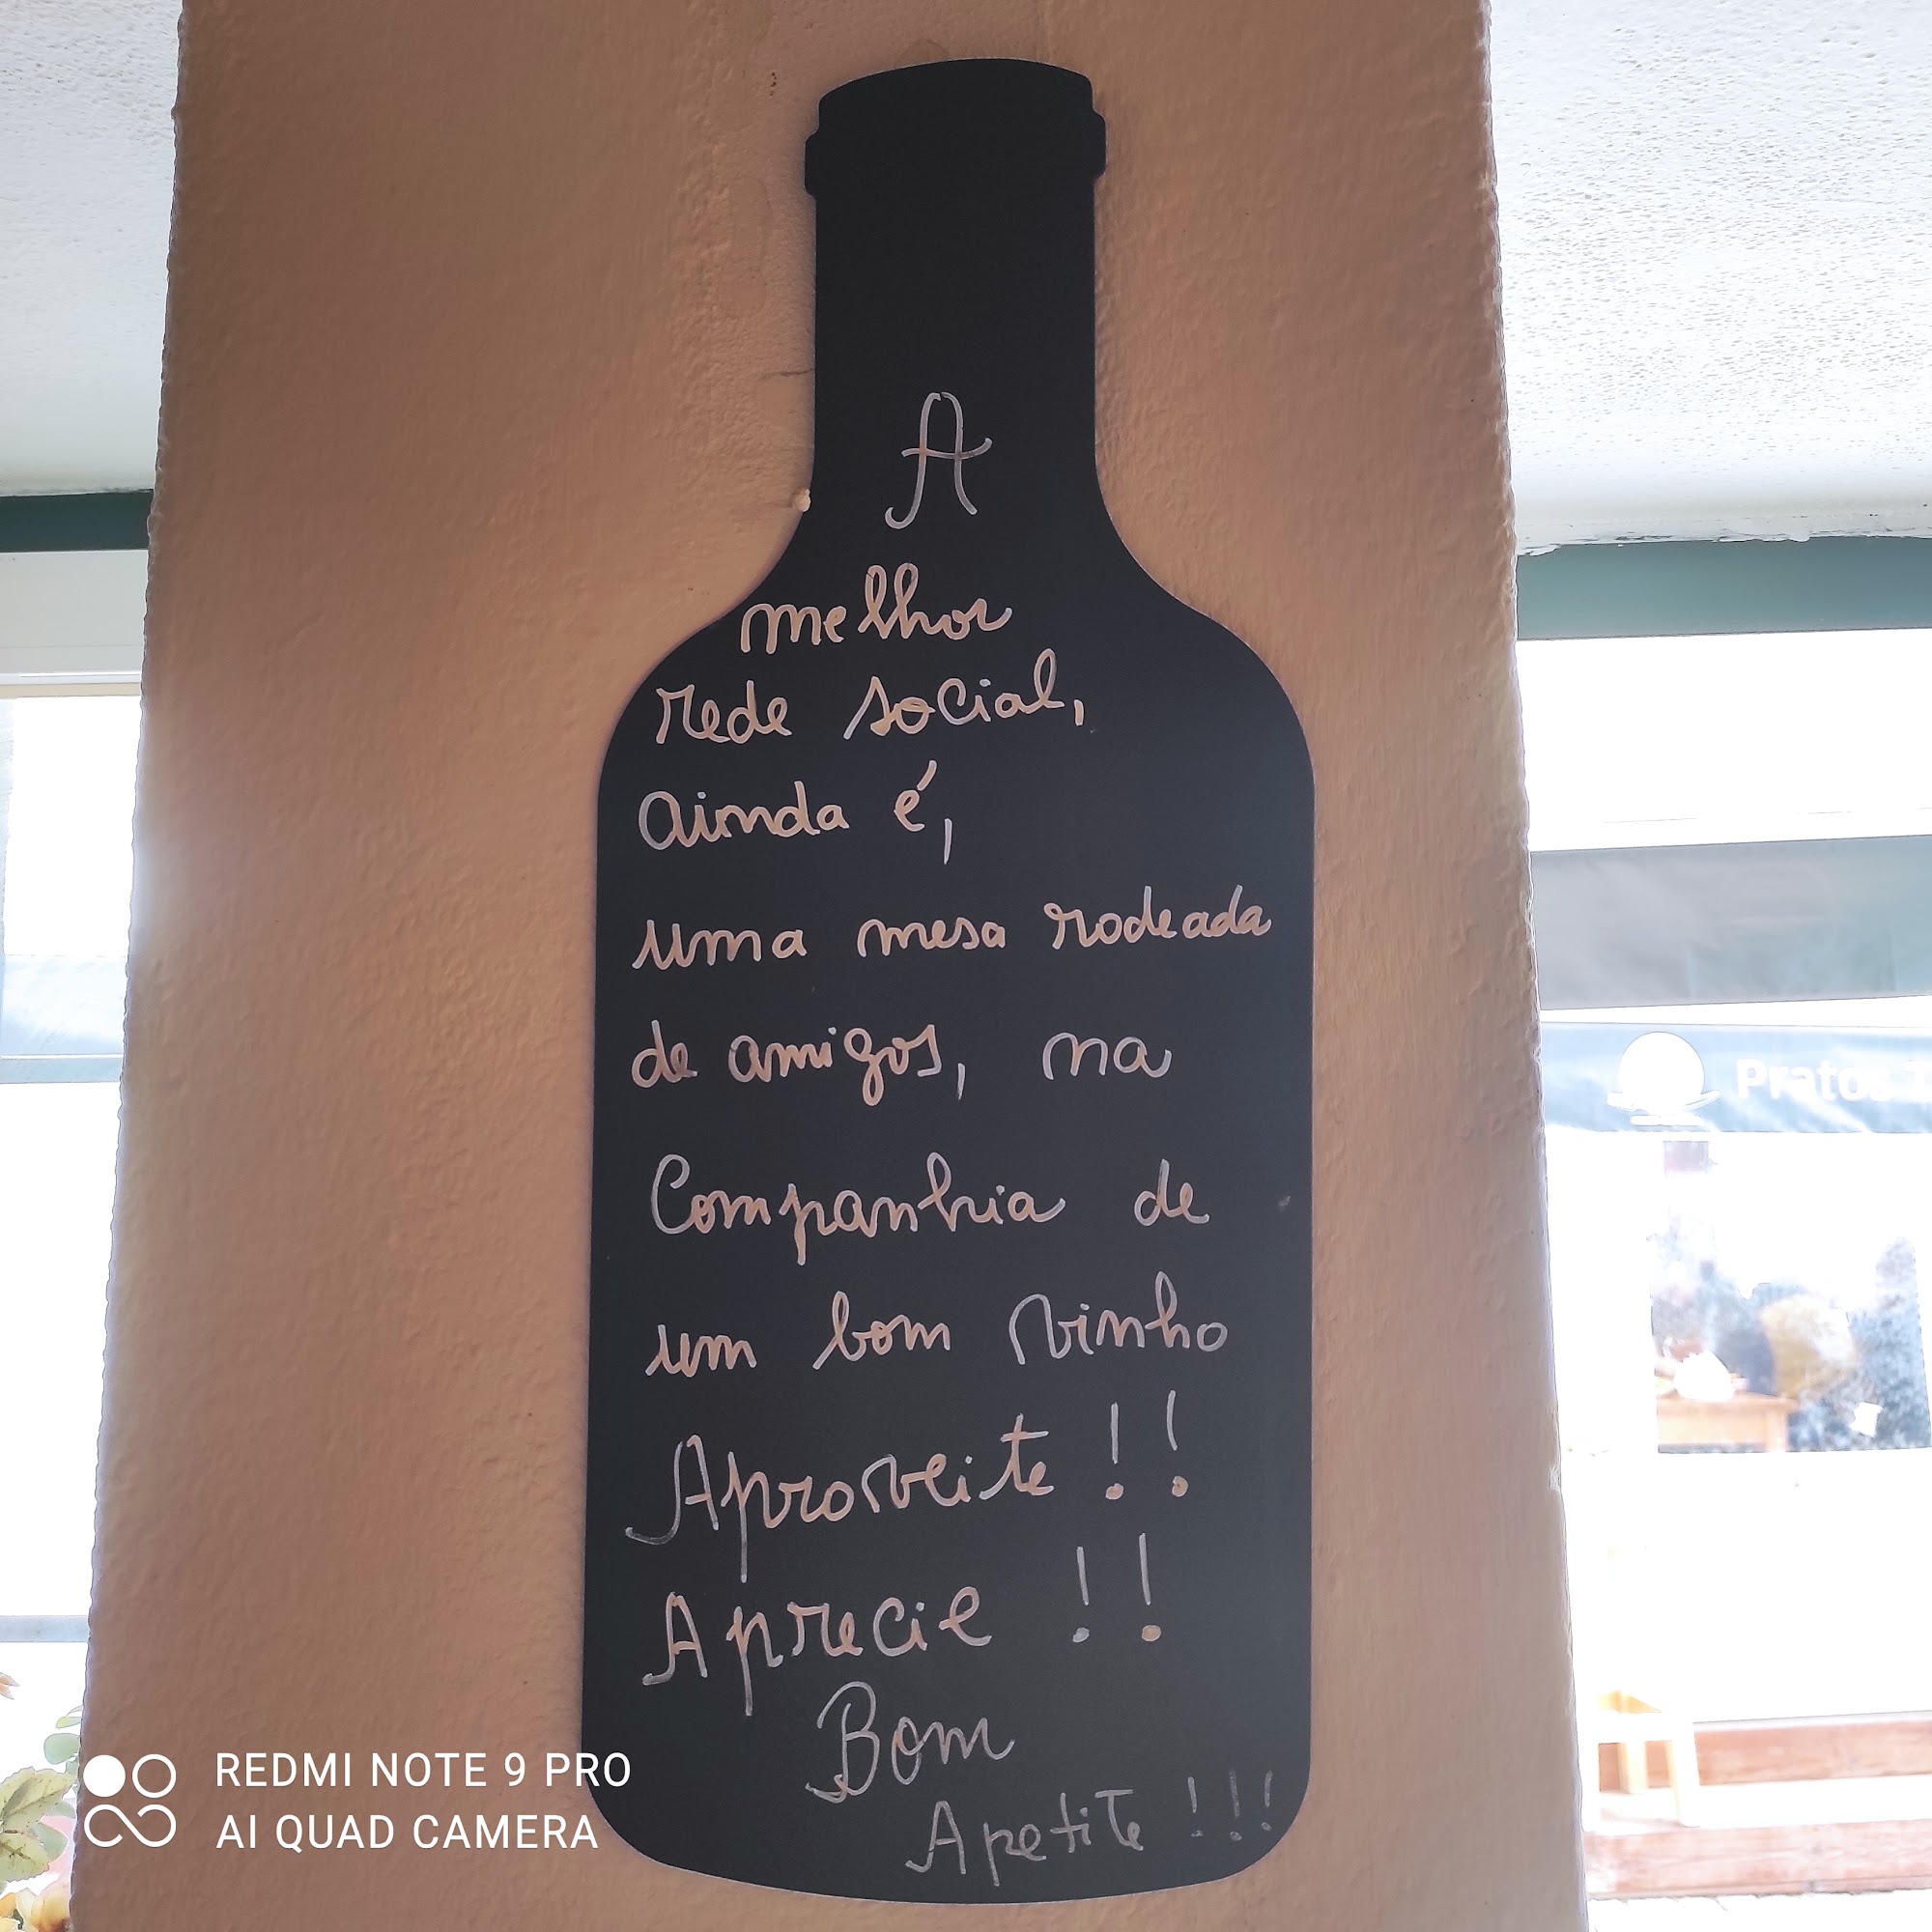 A
melhor
rede social,
ainda é,
uma mesa rodeada
de amigos, na
Companhia de
um bom vinho
Aproveite !!
Aprecie !!
Bom
Apetite !!!
Pratos T
REDMI NOTE 9 PRO
AI QUAD CAMERA